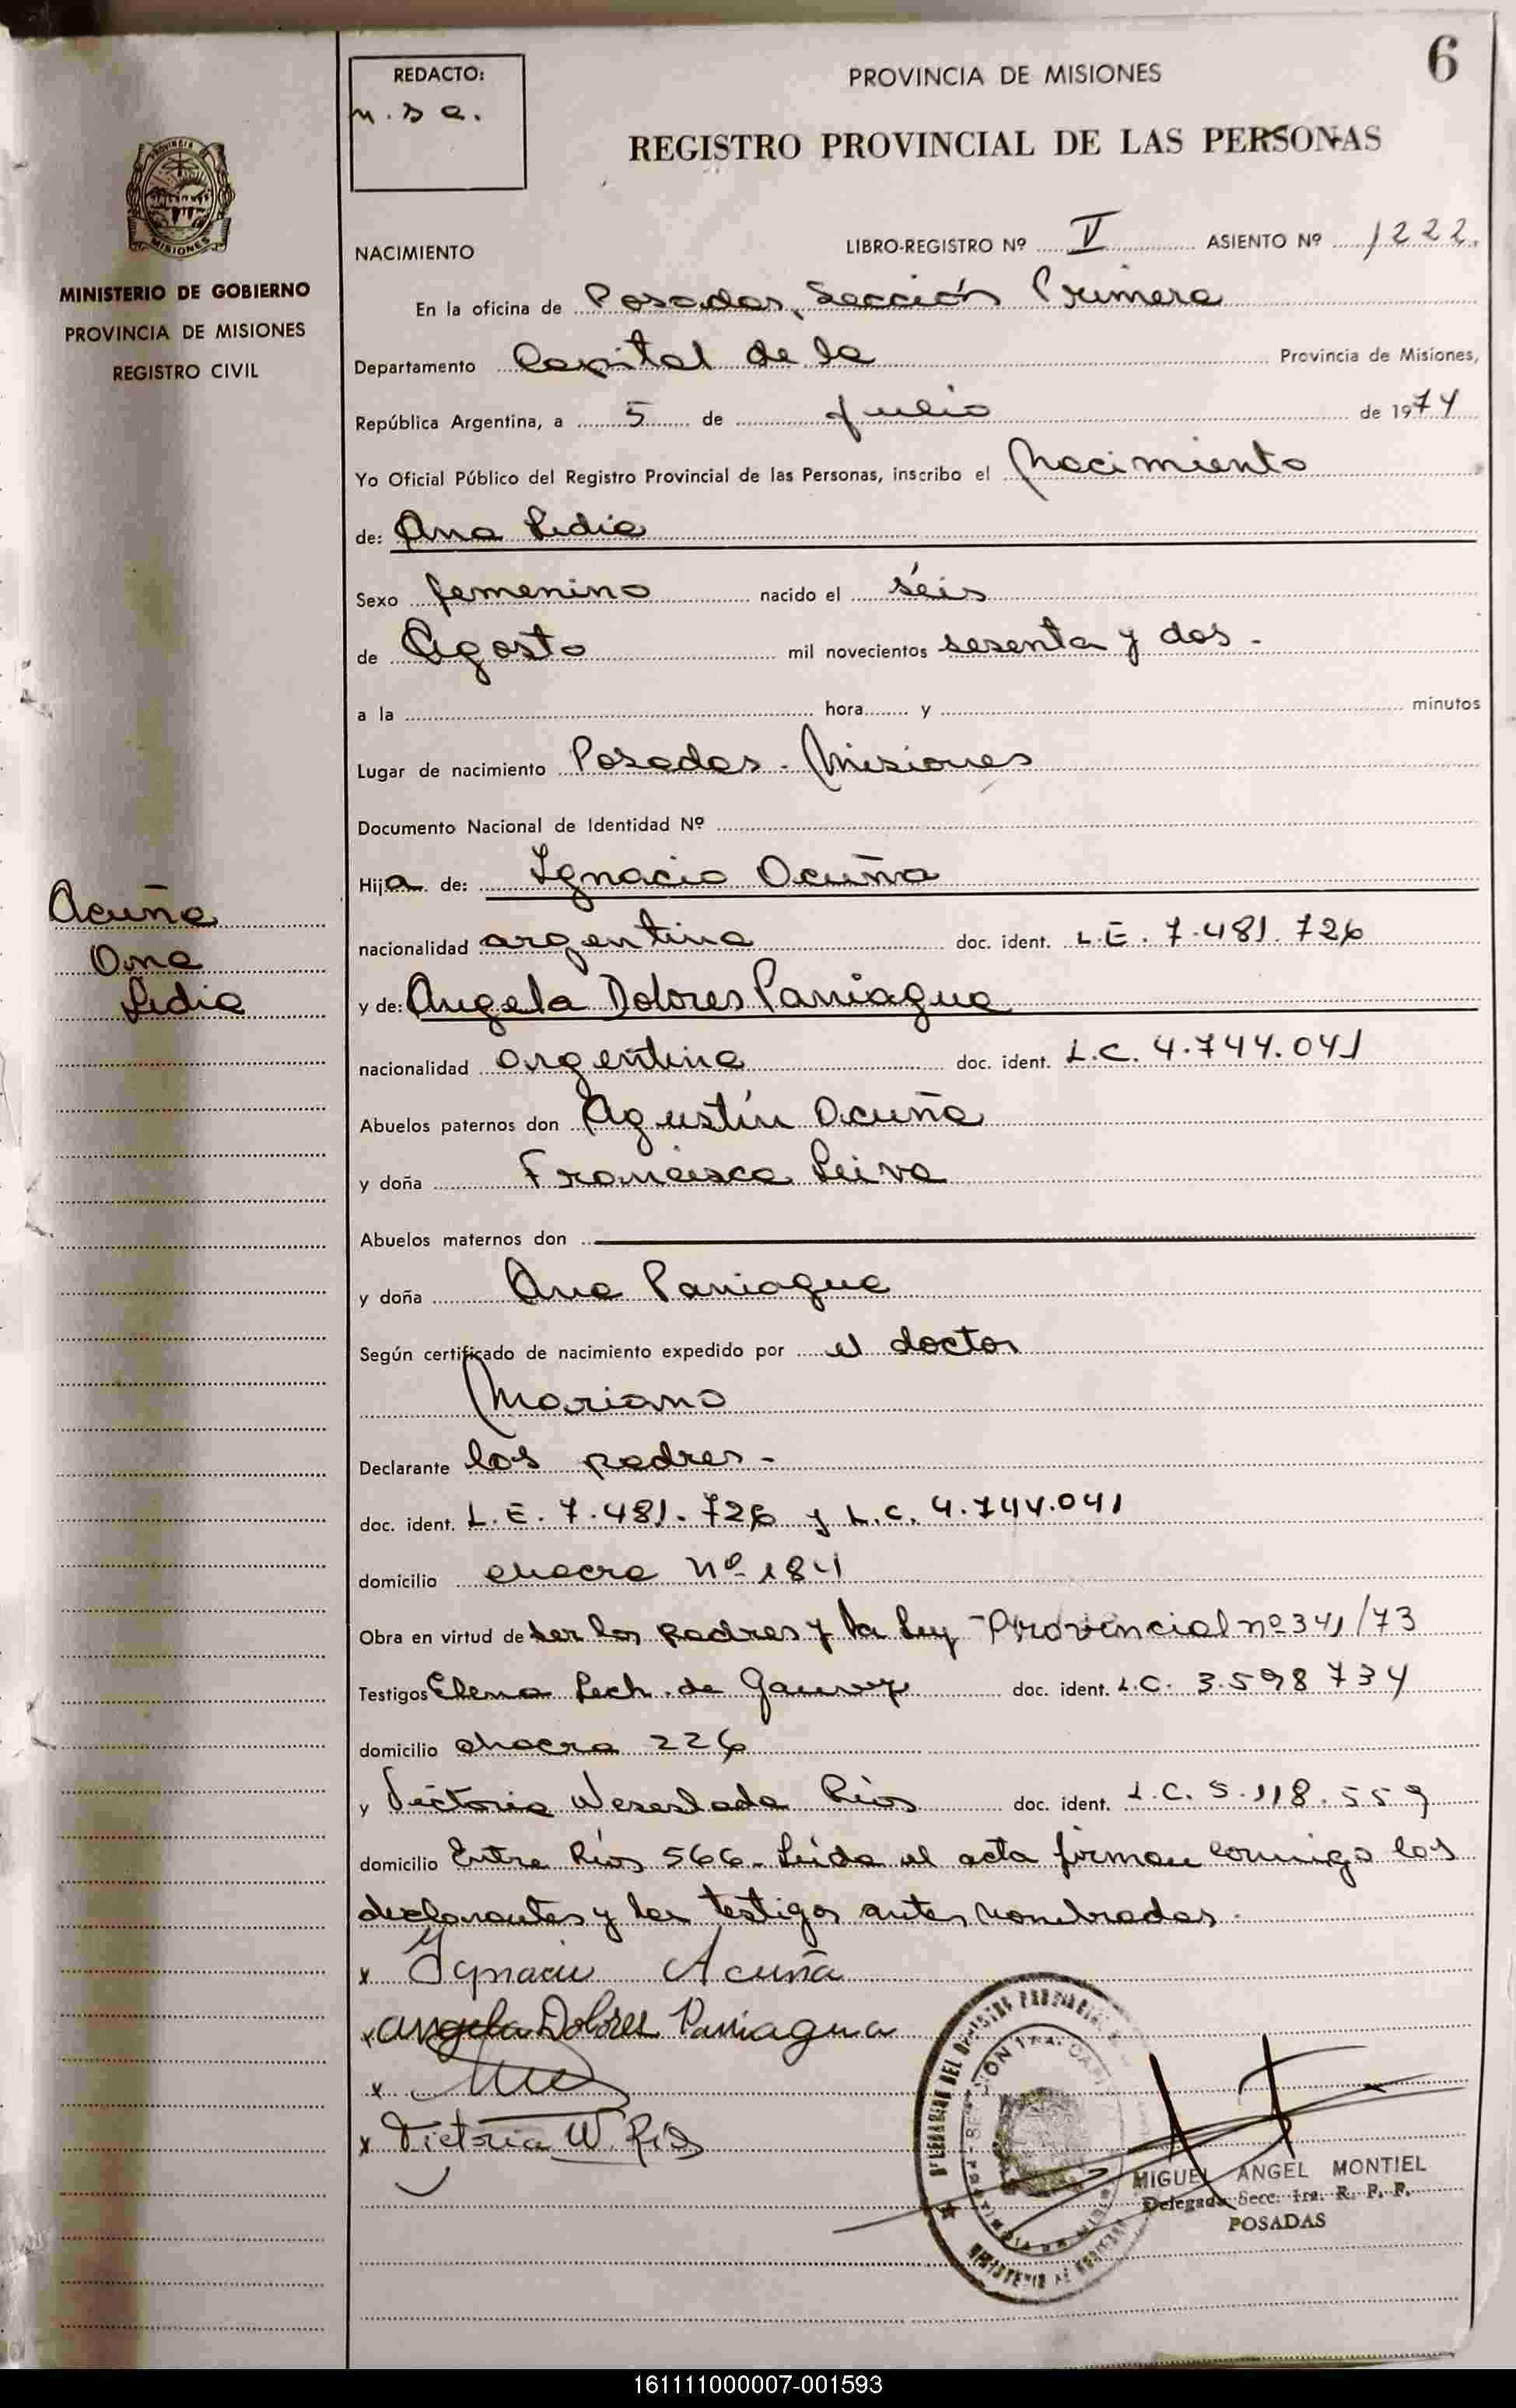 6
REDACTO:
PROVINCIA DE MISIONES
REGISTRO PROVINCIAL DE LAS PERSONAS
PROVINCIA
MISIONES
MINISTERIO DE GOBIERNO
PROVINCIA DE MISIONES
REGISTRO CIVIL
NACIMIENTO
LIBRO-REGISTRO Nº V ASIENTO Nº 1222.
En la oficina de Posadas, Sección Primera
Departamento Capital de la Provincia de Misiones,
República Argentina, a 5 de Julio de 1974
Yo Oficial Público del Registro Provincial de las Personas, inscribo el Nacimiento
de: Ana Lidia
Sexo femenino nacido el séis
de Agosto mil novecientos sesenta y dos -
a la hora y minutos
Lugar de nacimiento Posadas - Misiones
Documento Nacional de Identidad Nº
Hija de: Ignacio Acuña
Acuña
Ana
Lidia
nacionalidad argentina doc. ident. L.E. 7.481.726
y de: Angela Dolores Paniagua
nacionalidad argentina doc. ident. L.C. 4.744.041
Abuelos paternos don Agustín Acuña
y doña Francisca Leiva
Abuelos maternos don
y doña Ana Paniagua
Según certificado de nacimiento expedido por el doctor
Mariano
Declarante los padres -
doc. ident. L.E. 7.481.726 y L.C. 4.744.041
domicilio chacra nº 184
Obra en virtud de ser los padres y la Ley Provincial nº 341/73
Testigos Elena Lech de doc. ident. L.C. 3.598734
domicilio chacra 226
y Victoria Weseslada Ríos doc. ident. L.C. 5.118.559
domicilio Entre Ríos 566. Leída el acta firman conmigo los
declarantes y los testigos antes nombrados.
x Ignacio Acuña
x Angela Dolores Paniagua
x
x Victoria W. Ríos
MIGUEL ANGEL MONTIEL
Delegado Secc. 1ra. R. P. P.
POSADAS
161111000007-001593